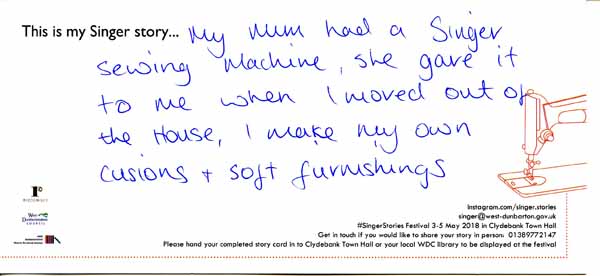 This is my Singer story... My Mum had a Singer
sewing machine, she gave it
to me when I moved out of
the House, I make my own
cusions + soft furnishings
instagram.com/singer.stories
singer@west-dunbarton.gov.uk
#SingerStories Festival 3-5 May 2018 in Clydebank Town Hall
Get in touch if you would like to share your story in person: 01389772147
Please hand your completed story card in to Clydebank Town Hall or your local WDC library to be displayed at the festival
West
Dunbartonshire
COUNCIL